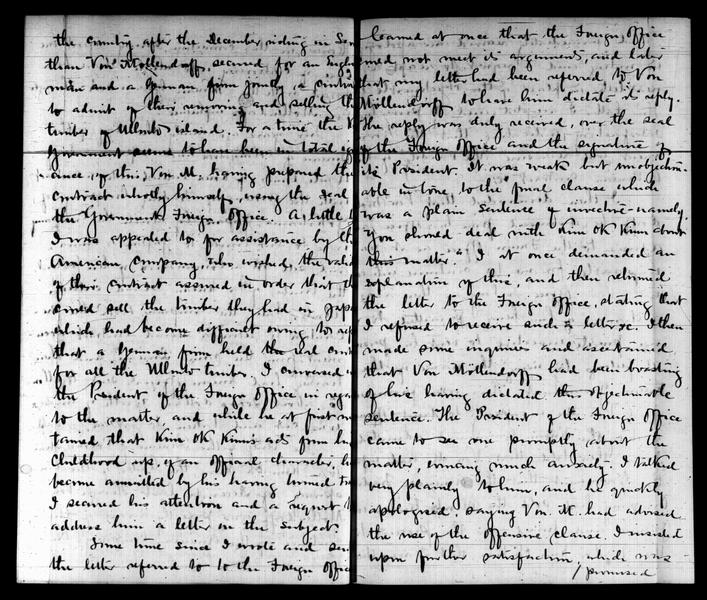 the country after the December rioting in
than Von Möllendorff, secured for an Engl
man and a German firm jointly, a
to admit of their removing and selling the
timber of Ullnto island. For a time the
Government seems to have been in total
ance of this, Von M. having prepared the
contract wholly himself, using the seal
the Government Foreign Office. A little
I was appealed to for assistance by the
American Company, who wished the
of their contract assured in order that th
could sell the timber they had in Japa
which had become difficult owing to
that a German firm held the real
for all the Ullnto timber. I conversed
the President of the Foreign Office in rega
to the matter, and while he at first
tained that Kim OK Kiun's acts from his
Childhood up, of an official character, h
become annulled by his having turned
I secured his attention and a request
address him a letter on the subject.
Some time since I wrote and sen
the letter referred to to the Foreign Office
learned at once that the Foreign Office
could not meet its arguments, and later
that my letter had been referred to Von
Möllendorff to have him dictate its reply.
The reply was duly received, over the seal
of the Foreign Office and the signature of
its President. It was weak but unobjection-
able in tone, to the final clause which
was a plain sentence of invective—namely,
"You should deal with Kim OK Kiun about
this matter." I at once demanded an
explanation of this, and then returned
the letter to the Foreign Office, stating that
I refused to receive such a letter &c. I then
made some inquiries and ascertained
that Von Möllendorff had been boasting
of his having dictated this objectionable
sentence. The President of the Foreign Office
came to see me promptly about the
matter, evincing much anxiety. I talked
very plainly to him, and he quickly
apologised, saying Von M. had advised
the use of the offensive clause. I insisted
upon further satisfaction, which was
/promised